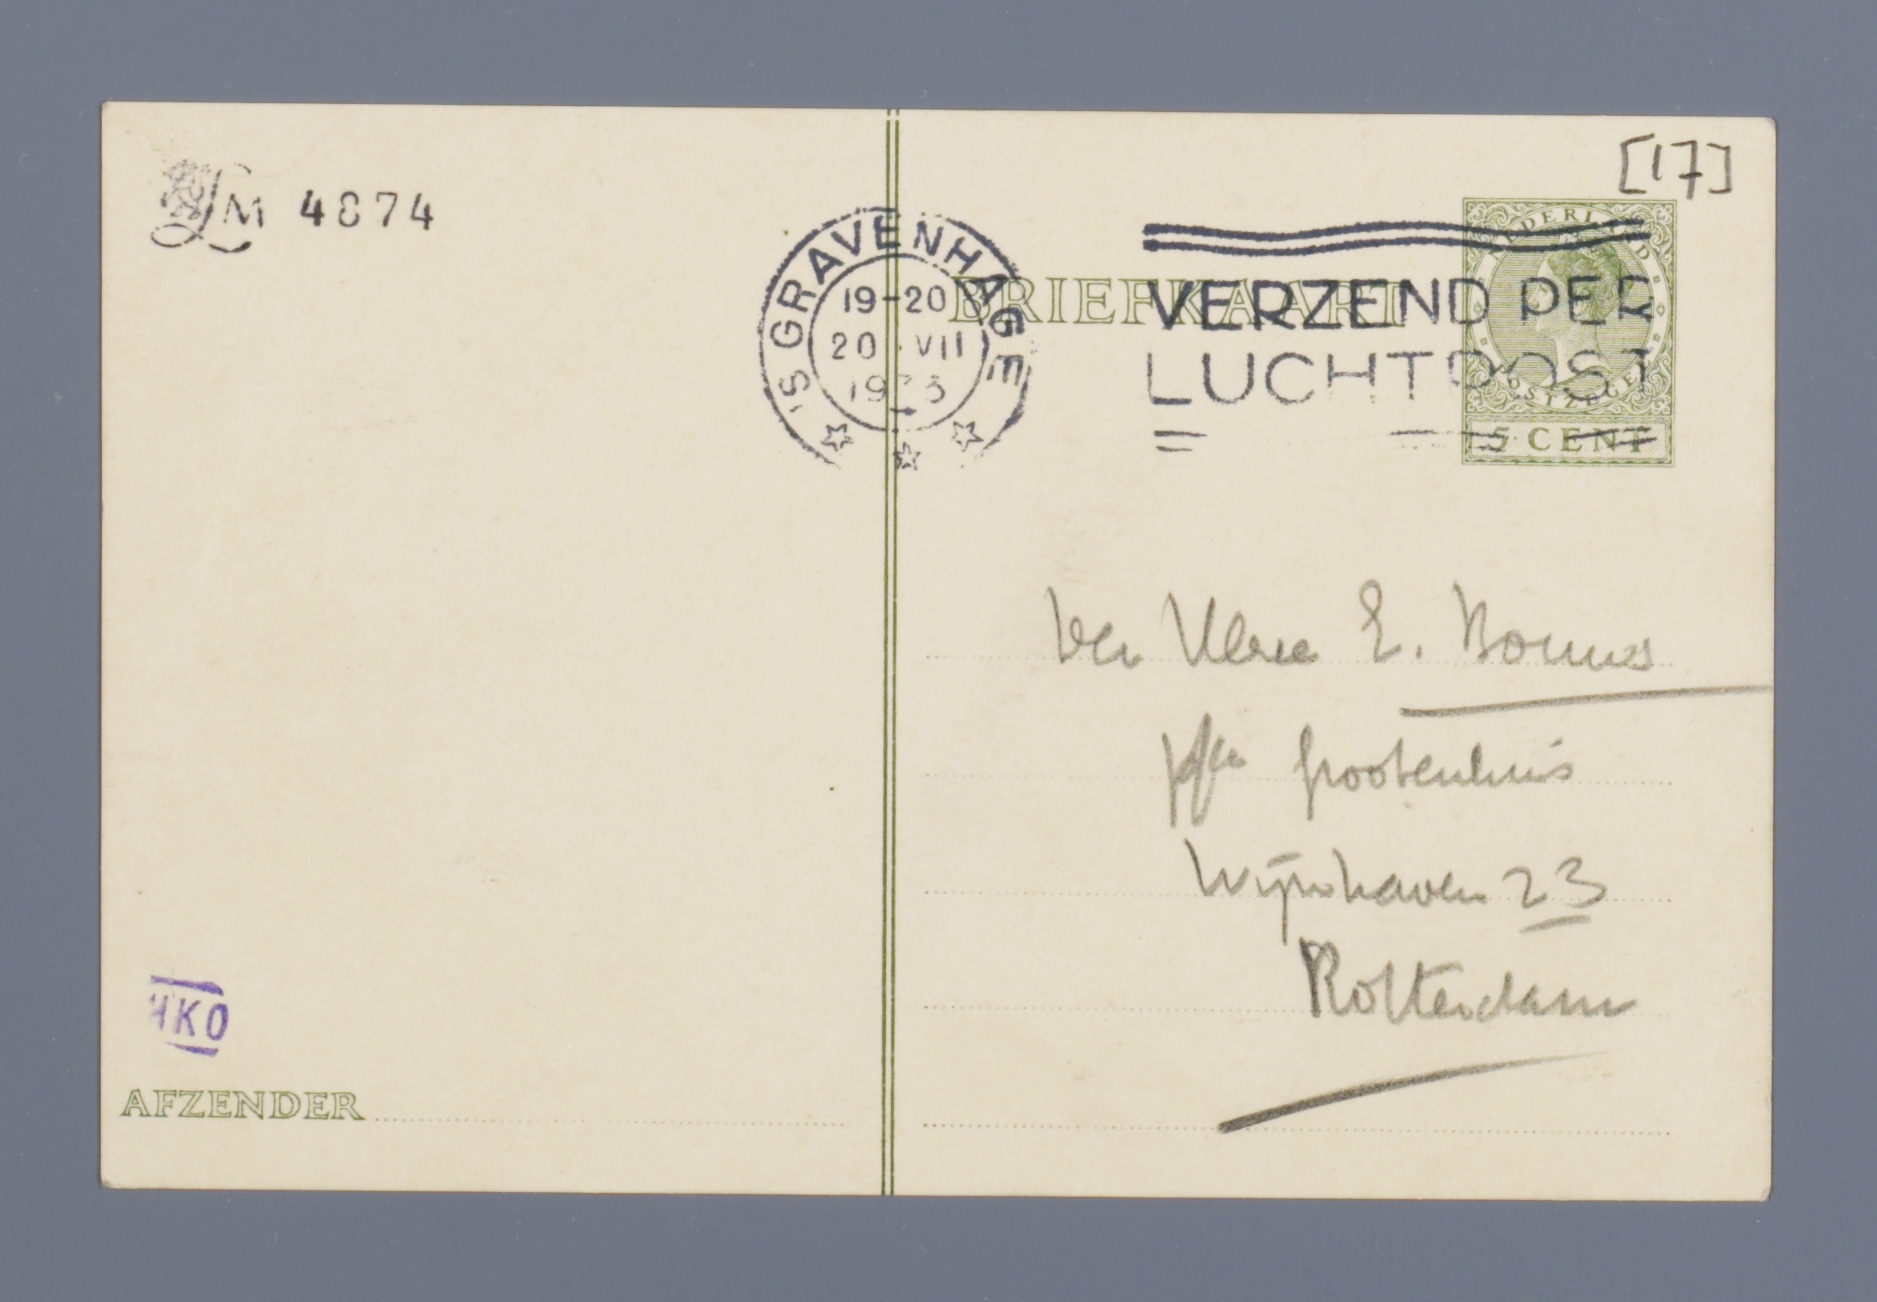 LM 4874
[17]
'S GRAVENHAGE
19-20
20 VII
NEDERLAND
POSTZEGEL
5 CENT
BRIEFKAART
VERZEND PER
LUCHTPOST
E. Bonnes
p/a Grootenhuis
Wijnhaven 23
Rotterdam
HKO
AFZENDER